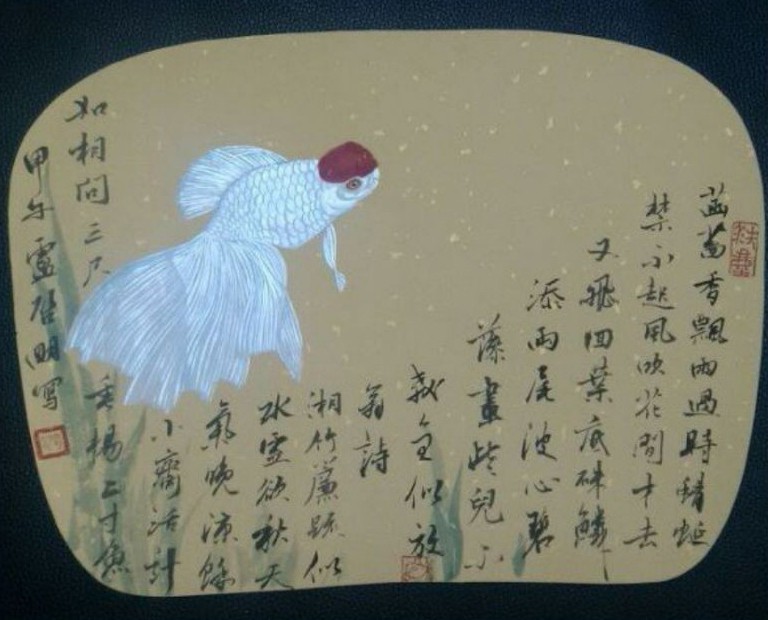 菡萏香飄雨過時蜻蜓
禁不起風吹花間才去
又飛回葉底硃鱗
添兩尾波心碧
藻畫些兒不
裁全似放
翁詩
湘竹簾疏似
水虛欲秋天
氣晚涼餘
小齋活計
如相問三尺垂楊二寸魚
甲午盧啟明写